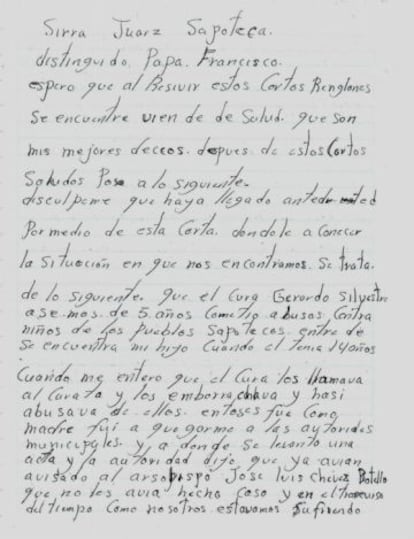 Sirra Juarz Sapoteca.
distinguido. Papa. Francisco.
espero que al Resivir estos Cortos Renglones
Se encuentre vien de de Salud. que son
mis mejores deceos. depues de estos Cortos
Saludos Paso a lo siguiente.
disculpeme que haya llegado ante usted
Por medio de esta Carta. dandole a Conocer
la situación en que nos encontramos. Se trata.
de lo siguiente. que el Cura Gerardo Silvestre
ase mas de 5 años Cometio abusos Contra
niños de los Pueblos Sapotecos. entre de
Se encuentra mi hijo Cuando el tenia 14 años
Cuando me entero que el Cura los llamava
al Curato y los emborrachava y hasi
abusava de ellos. entoses fue Como
madre fui a quegarme a las autoridades
municipales y a donde se levanto una
acta y la autoridad dijo que ya avian
avisado al arsobispo Jose Luis Chavez Botello
que no les avia hecho caso y en el trascurso
del tiempo Como nosotros estavamos Sufriendo